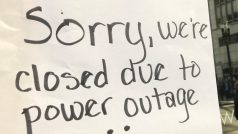 Sorry, we're
closed due to
power outage